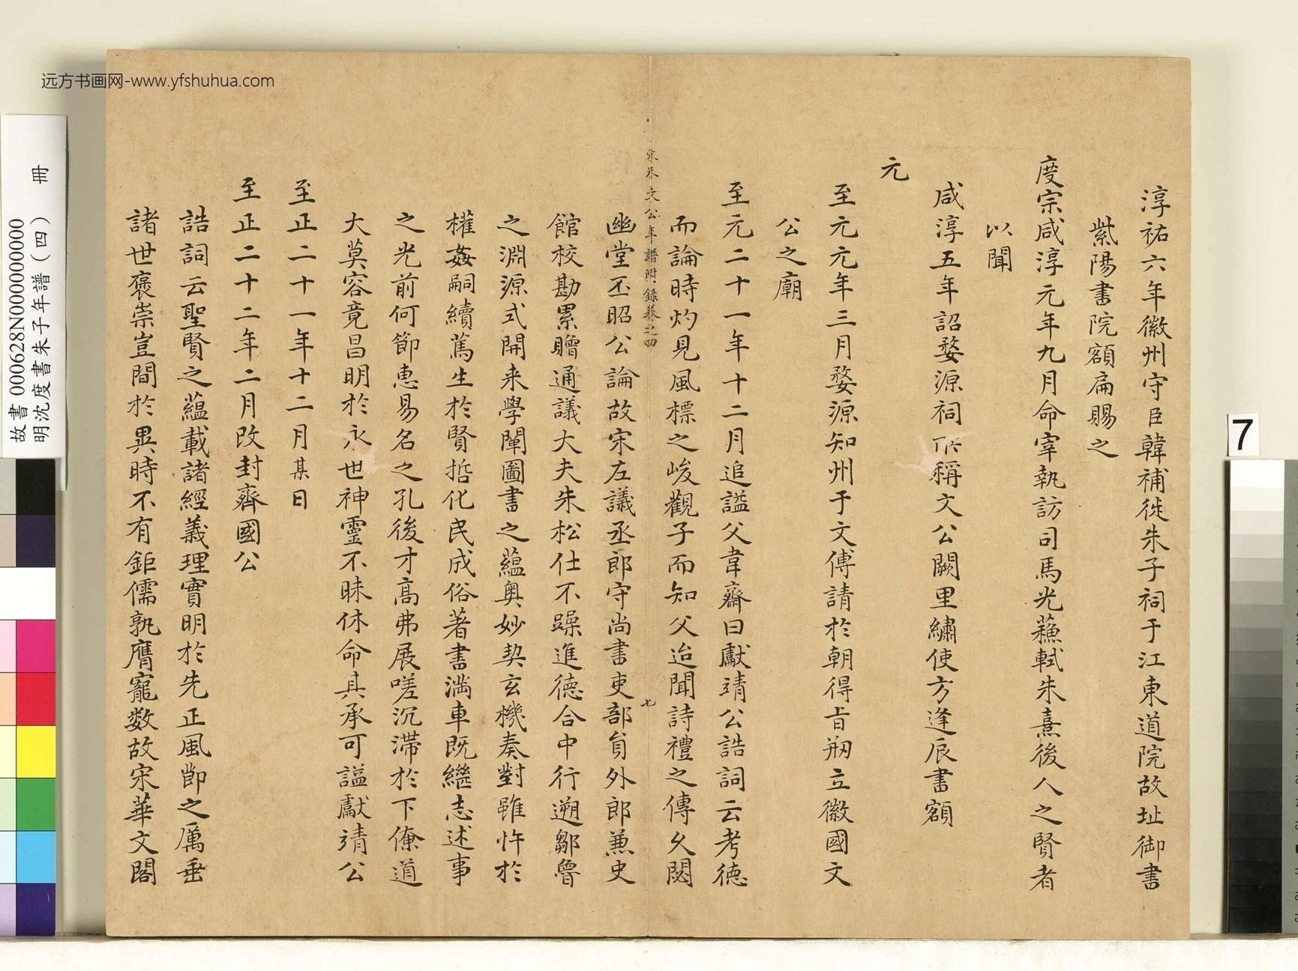 远方书画网-www.yfshuhua.com
淳祐六年徽州守臣韓補徙朱子祠于江東道院故址御書
紫陽書院額扁賜之
度宗咸淳元年九月命宰執訪司馬光蘓軾朱熹後人之賢者
以聞
咸淳五年詔婺源祠所稱文公闕里繡使方逢辰書額
元
至元元年三月婺源知州于文傅請於朝得旨剏立徽國文
公之廟
至元二十一年十二月追謚父韋齋曰獻靖公誥詞云考德
而論時灼見風標之峻觀子而知父迨聞詩禮之傳久閟
宋朱文公年譜附錄卷之四
七
幽堂丕昭公論故宋左議丞郎守尚書吏部員外郎兼史
館校勘累贈通議大夫朱松仕不躁進德合中行遡鄒魯
之淵源式開来學闡圖書之蘊奥妙契玄機奏對雖忤於
權姦嗣續篤生於賢哲化民成俗著書滿車既繼志述事
之光前何節惠易名之孔後才高弗展嗟沉滯於下僚道
大莫容竟昌明於永世神靈不昧休命其承可謚獻靖公
至正二十一年十二月某日
至正二十二年二月改封齊國公
誥詞云聖賢之蘊載諸經義理實明於先正風節之厲垂
諸世褒崇豈間於異時不有鉅儒孰膺寵数故宋華文閣
故書 000628N000000000
明沈度書朱子年譜(四) 冊
7